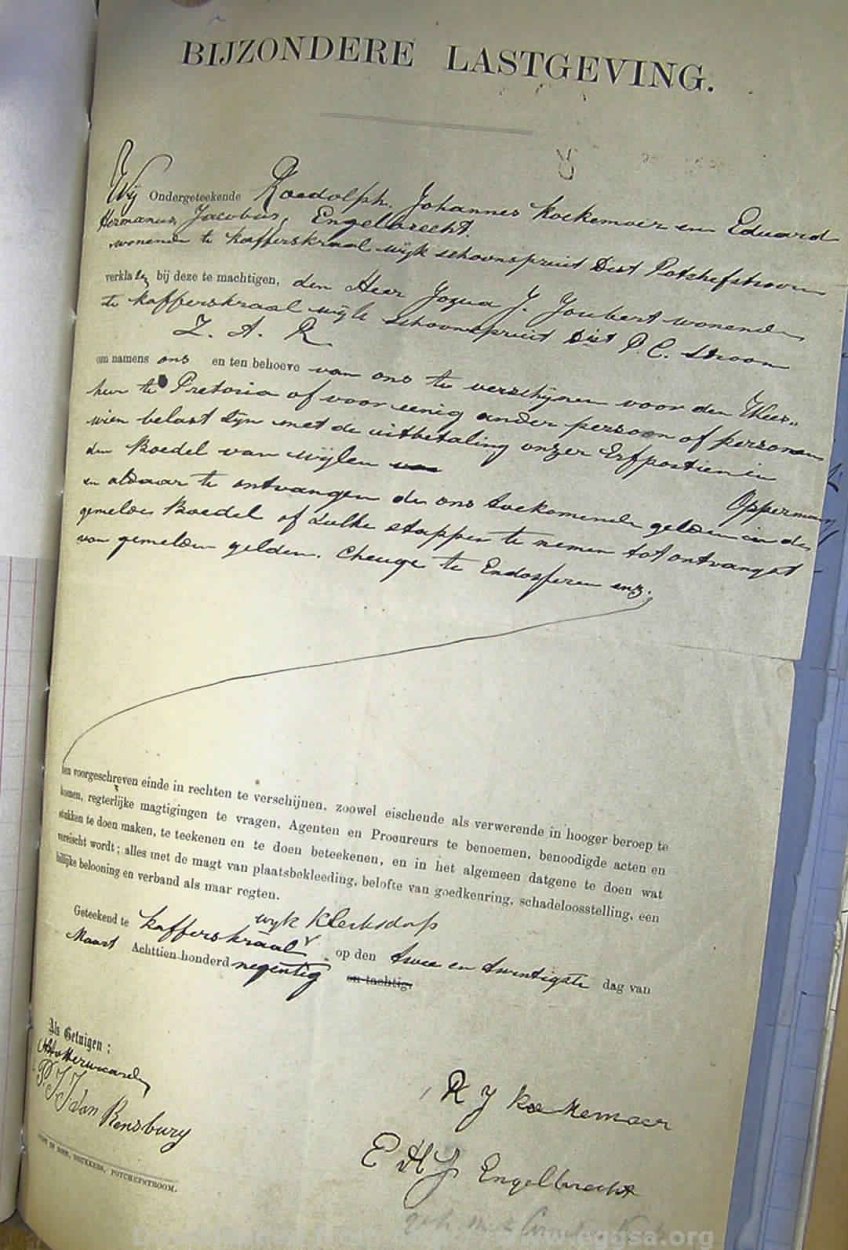 BIJZONDERE LASTGEVING.
Wij Ondergeteekende Roedolph Johannes Koekemoer en Eduard
Hermanus Jacobus Engelbrecht
wonende te Kafferskraal wijk Schoonspruit Dist Potchefstroom
verkla en bij deze te machtigen, den Heer Jozua J. Joubert wonende
te Kafferskraal wijk Schoonspruit Dist P.C. Stroom
Z. A. R.
om namens ons en ten behoeve van ons te verschijnen voor den Wees-
heer te Pretoria of voor eenig ander persoon of personen
wien belast zijn met de uitbetaling onzer Erfportien in
den Boedel van wijlen Opperman
en aldaar te ontvangen de ons toekomende gelden in de
gemelde Boedel of zulke stappen te nemen tot ontvangst
van gemelde gelden. Cheuge te Endosseren enz.
ten voorgeschreven einde in rechten te verschijnen, zoowel eischende als verwerende in hooger beroep te
komen, regterlijke magtigingen te vragen, Agenten en Procureurs te benoemen, benoodigde acten en
stukken te doen maken, te teekenen en te doen beteekenen, en in het algemeen datgene te doen wat
vereischt wordt; alles met de magt van plaatsbekleeding, belofte van goedkeuring, schadeloosstelling, een
billijke belooning en verband als naar regten.
wyk Klerksdorp
Geteekend te Kafferskraal op den twee en twintigste dag van
Maart Achttien honderd negentig en tachtig.
Als Getuigen:
P. J. J. Van Rensburg
R J Koekemoer
E H J Engelbrecht
POTCHEFSTROOM.
www.eggsa.org